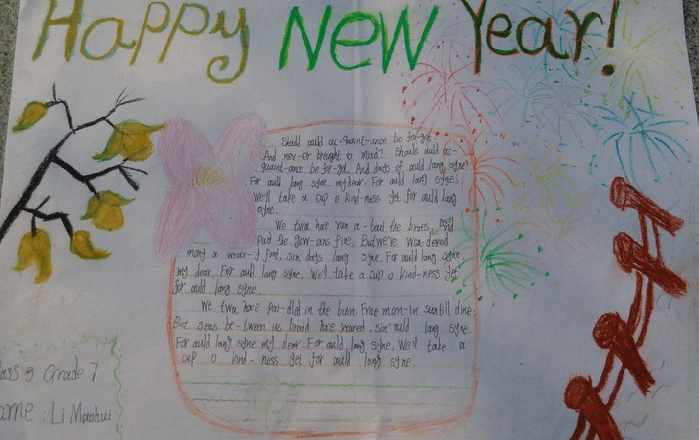 Happy New Year!
Should auld ac-quaint-ance be for-got
And nev-er brought to mind? Should auld ac-
quaint-ance be for-got. And days of auld lang syne?
For auld lang syne, my dear. For auld lang syne.
We'll take a cup o kind-ness yet for auld lang
syne.
We twa have run a-bout the braes, And
pu'd the gow-ans fine, But we've wan-dered
many a wear-y foot, sin days lang syne. For auld lang syne.
my dear. For auld lang syne. We'll take a cup o kind-ness yet
for auld lang syne.
We twa have pai-dled in the burn. Frae morn-in sun till dine.
But seas be-tween us braid have roared sin' auld lang syne.
For auld lang syne my dear. For auld lang syne. We'll take a
cup o kind-ness yet for auld lang syne
Class 3 Grade 7
Name: Li